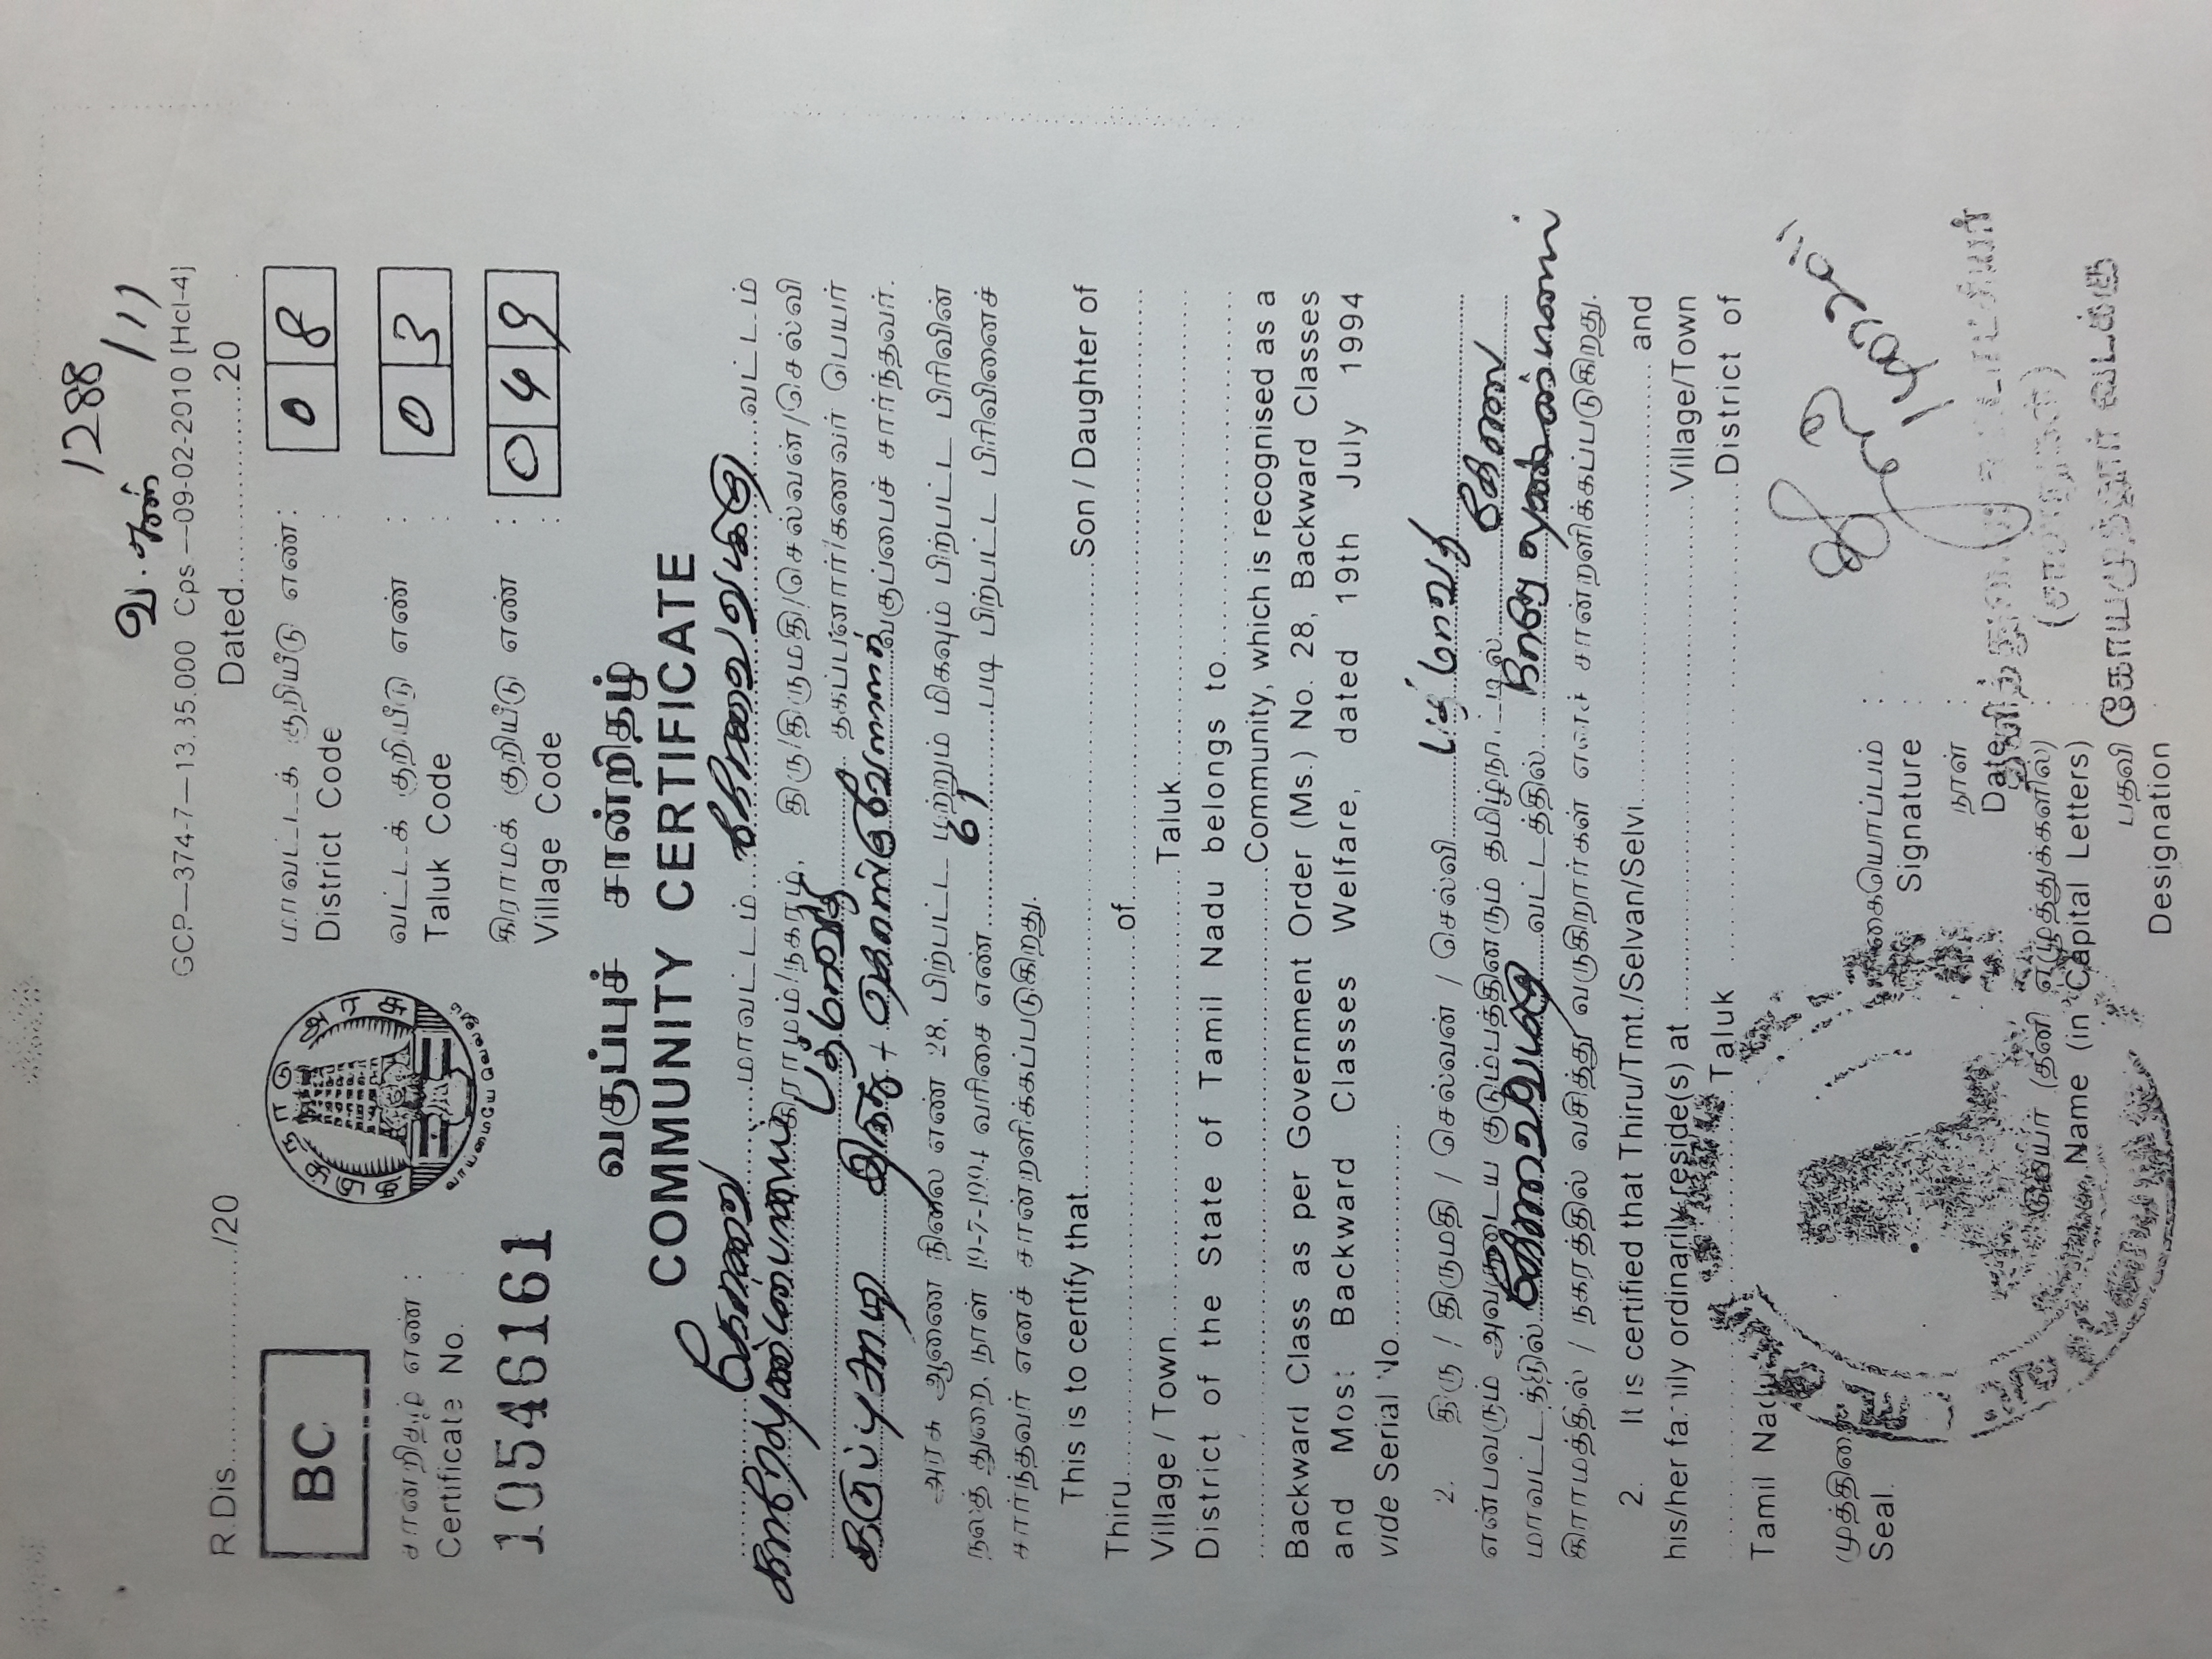 1288
வ. எண் /11
GCP—374-7—13.35.000 Cps —09-02-2010 [Hcl-4]
R.Dis................/20 Dated................20
BC
தமிழ்நாடு அரசு
வாய்மையே வெல்லும்
மாவட்டக் குறியீடு எண் : 0 8
District Code :
சான்றிதழ் எண் : வட்டக் குறியீடு எண் : 0 3
Certificate No. : Taluk Code :
10546161
கிராமக் குறியீடு எண் : 0 4 9
Village Code :
வகுப்புச் சான்றிதழ்
COMMUNITY CERTIFICATE
கோவை மாவட்டம் வட்டம்
கிராமம்/நகரம், திரு/திருமதி/செல்வன்/செல்வி
பத்மாவதி தகப்பனார்/கணவர் பெயர்
கருப்புசாமி இந்து வகுப்பைச் சார்ந்தவர்.
அரசு ஆணை நிலை எண் 28, பிற்பட்ட மற்றும் மிகவும் பிற்பட்ட பிரிவின்
நலத் துறை, நாள் 19-7-1994 வரிசை எண் படி பிற்பட்ட பிரிவினைச்
சார்ந்தவர் எனச் சான்றளிக்கப்படுகிறது.
This is to certify that................Son / Daughter of
Thiru................of................
Village / Town................Taluk................
District of the State of Tamil Nadu belongs to................
................Community, which is recognised as a
Backward Class as per Government Order (Ms.) No. 28, Backward Classes
and Most Backward Classes Welfare, dated 19th July 1994
vide Serial No................
2. திரு / திருமதி / செல்வன் / செல்வி பத்மாவதி
என்பவரும் அவருடைய குடும்பத்தினரும் தமிழ்நாட்டில் கோவை
மாவட்டத்தில் வட்டத்தில்
கிராமத்தில் / நகரத்தில் வசித்து வருகிறார்கள் எனச் சான்றளிக்கப்படுகிறது.
2. It is certified that Thiru/Tmt./Selvan/Selvi................and
his/her family ordinarily reside(s) at................Village/Town
................Taluk................District of
Tamil Nadu
முத்திரை கையொப்பம் :
Seal. Signature :
நாள்
Date
பெயர் (தனி எழுத்துக்களில்) :
Name (in Capital Letters)
பதவி கோயமுத்தூர் வடக்கு
Designation :